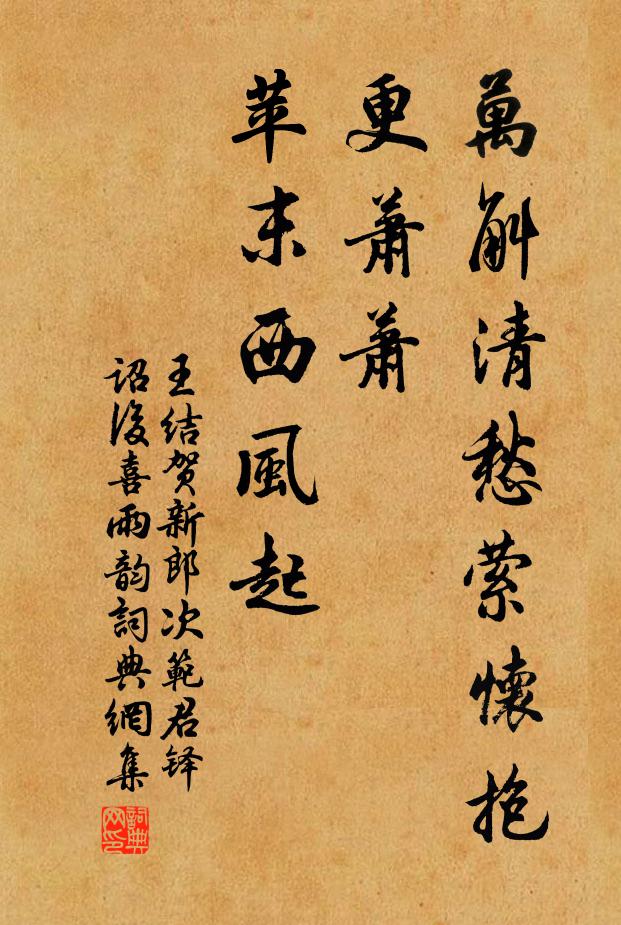 萬斛清愁萦懷抱
更蕭蕭
苹末西風起
王结贺新郎次範君铎
诏後喜雨韵詞典網集
詞典
网印